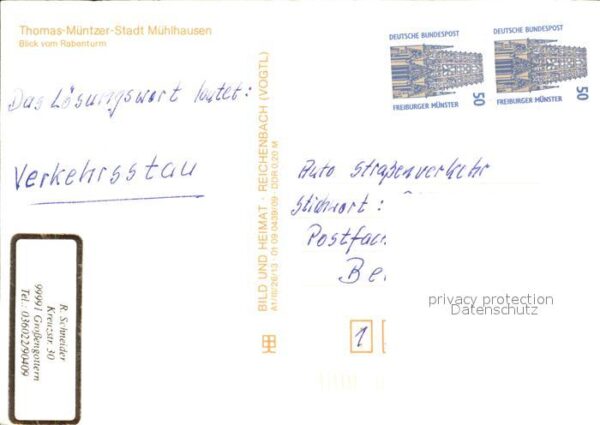 Thomas-Müntzer-Stadt Mühlhausen
Blick vom Rabenturm
Das Lösungswort lautet:
Verkehrsstau
R. Schneider
Kreuzstr. 30
99991 Großengottern
Tel.: 036022/90409
BILD UND HEIMAT · REICHENBACH (VOGTL)
A1/III/26/13 · 01 09 0439/09 · DDR 0,20 M
DEUTSCHE BUNDESPOST
50
FREIBURGER MÜNSTER
DEUTSCHE BUNDESPOST
50
FREIBURGER MÜNSTER
Auto Straßenverkehr
Stichwort:
Postfac
Be
privacy protection
Datenschutz
1